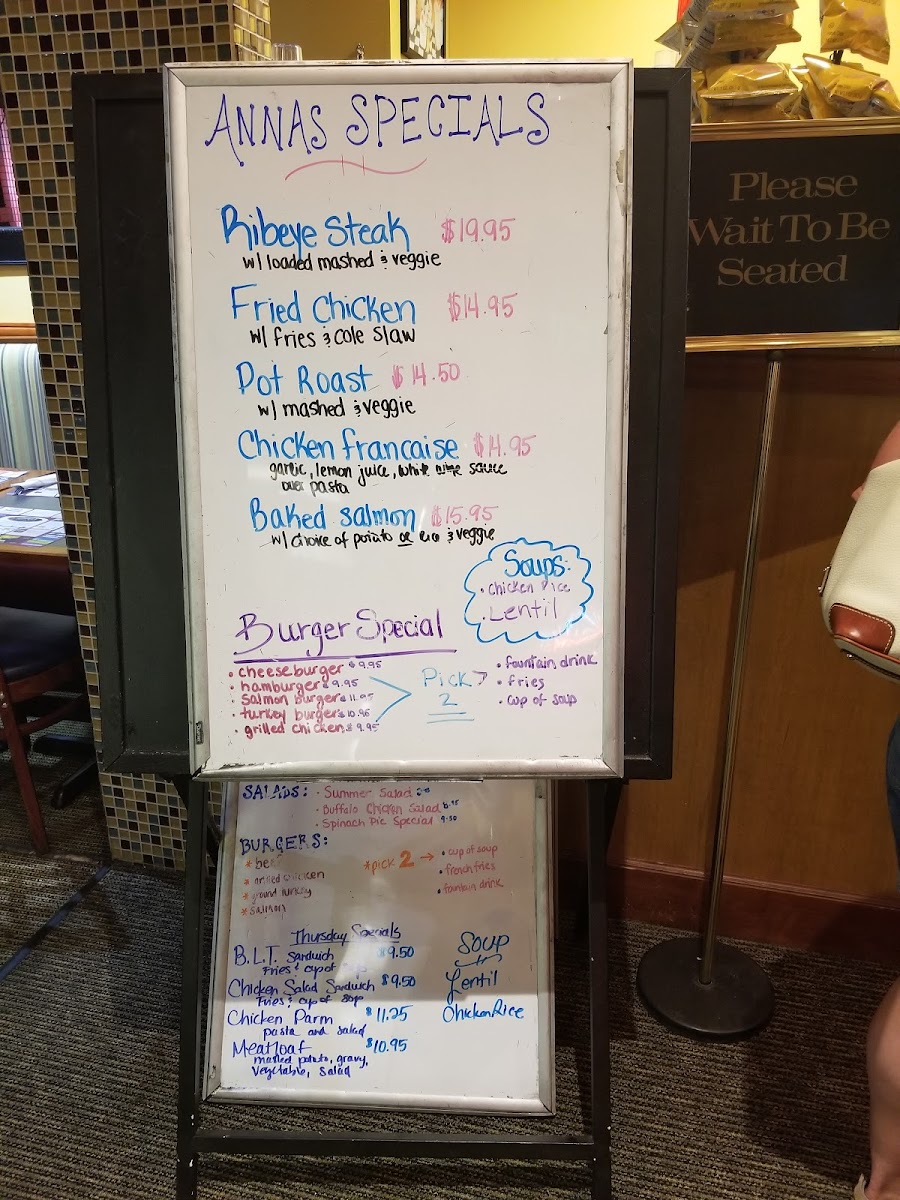 ANNAS SPECIALS
Ribeye Steak $19.95
w/ loaded mashed & veggie
Fried Chicken $14.95
w/ fries & cole slaw
Pot Roast $14.50
w/ mashed & veggie
Chicken francaise $14.95
garlic, lemon juice, white wine sauce
over pasta
Baked salmon $15.95
w/ choice of potato or rice & veggie
Soups:
• Chicken Rice
• Lentil
Burger Special
• cheeseburger $9.95
• hamburger $9.95
• Salmon burger $11.95
• turkey burger $10.95
• grilled chicken $9.95
Pick
2
• fountain drink
• fries
• cup of soup
SALADS: • Summer Salad
• Buffalo Chicken Salad
• Spinach Pie Special 9.50
BURGERS:
* beef
* grilled chicken
* ground turkey
* salmon
*pick 2 →
• cup of soup
• french fries
• fountain drink
Thursday Specials
B.L.T. Sandwich $9.50
Fries & cup of soup
Chicken Salad Sandwich $9.50
Fries & cup of soup
Chicken Parm $11.25
pasta and salad
Meatloaf $10.95
mashed potato, gravy,
vegetable, salad
Soup
Lentil
Chicken Rice
Please
Wait To Be
Seated